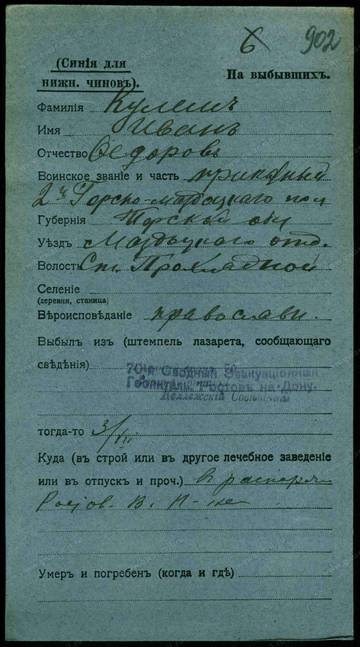 6 902
(Синія для
нижн. чиновъ).
На выбывшихъ.
Фамилія Кулешъ
Имя Иванъ
Отчество Ѳедоровъ
Воинское званіе и часть приказный
2й Горско-Моздокскаго пол
Губернія Терской обл
Уѣздъ Моздокскаго отд.
Волость Ст. Прохладной
Селеніе
(деревня, станица)
Вѣроисповѣданіе православн.
Выбылъ изъ (штемпель лазарета, сообщающаго
свѣдѣнія)
70 Сводный Эвакуаціонный
Ростовъ на-Дону.
тогда-то 3/VII
Куда (въ строй или въ другое лечебное заведеніе
или въ отпускъ и проч.) въ распоряж
Ростов. В. Н-ка
Умеръ и погребенъ (когда и гдѣ)